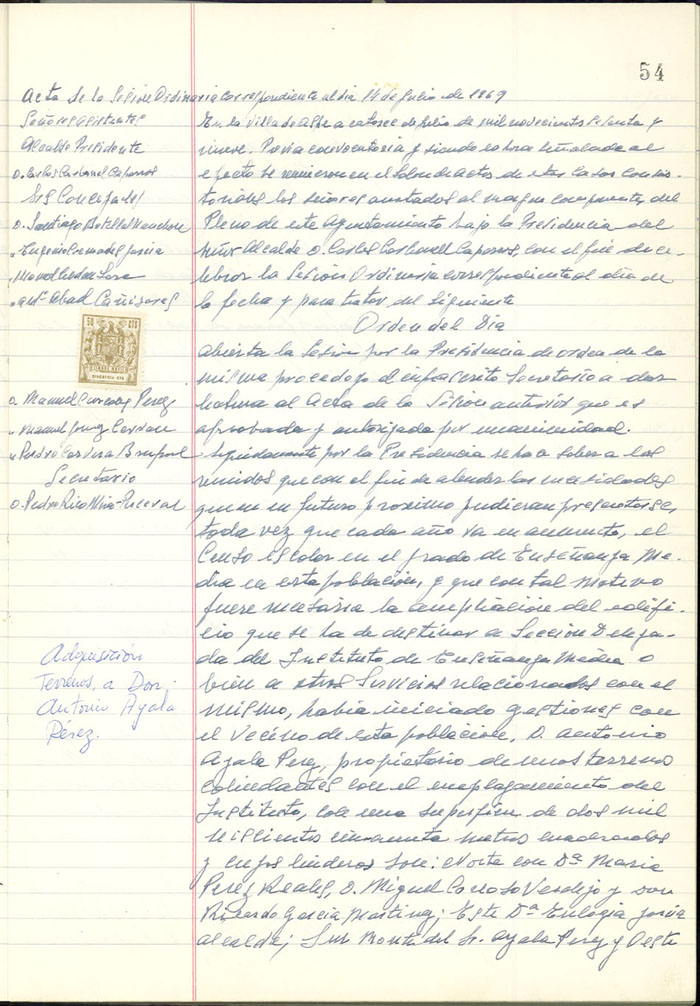 54
Acta de la Sesion Ordinaria correspondiente al dia 14 de Julio de 1969
Señores asistentes
Alcalde Presidente
D. Carlos Carbonel Caparros
Srs Concejales
D. Santiago Botella
" Eugenio Cremades Garcia
" Manuel
" Antº Abad Cañizares
50 CTS
D. Manuel Perez
" Manuel Cerdan
" Pedro Cerdera
Secretario
D. Pedro Rico
Adquisición
Terrenos, a Don
Antonio Ayala
Pérez.
En la villa de Aspe a catorce de Julio de mil novecientos sesenta y
nueve. Previa convocatoria y siendo la hora señalada al
efecto se reunieron en el Salon de actos de estas Casas Consis-
toriales los señores anotados al margen componentes del
Pleno de este Ayuntamiento bajo la Presidencia del
señor Alcalde D. Carlos Carbonell Caparros, con el fin de ce-
lebrar la Sesion Ordinaria correspondiente al dia de
la fecha y para tratar del siguiente
Orden del Dia
Abierta la Sesion por la Presidencia de orden de la
misma procedo yo el infrascrito Secretario a dar
lectura al Acta de la Sesion anterior que es
aprobada y autorizada por unanimidad.
Seguidamente por la Presidencia se hace saber a los
reunidos que con el fin de atender las necesidades
que en un futuro proximo pudieran presentarse,
toda vez que cada año va en aumento, el
Censo escolar en el grado de Enseñanza Me-
dia en esta poblacion, y que con tal motivo
fuere necesaria la ampliacion del edifi-
cio que se ha de destinar a Seccion Delega-
da del Instituto de Enseñanza Media o
bien a otros Servicios relacionados con el
mismo, habia iniciado gestiones con
el Vecino de esta poblacion, D. Antonio
Ayala Perez, propietario de unos terrenos
colindantes con el emplazamiento del
Instituto, con una superficie de dos mil
seiscientos cincuenta metros cuadrados
y cuyos linderos son: Norte con Dª Maria
Perez Reales, D. Miguel Carroso Verdejo y Don
Ricardo Garcia Martinez; Este Dª Eulogia Garcia
Alcalde; Sur Monte del Sr. Ayala Perez y Oeste